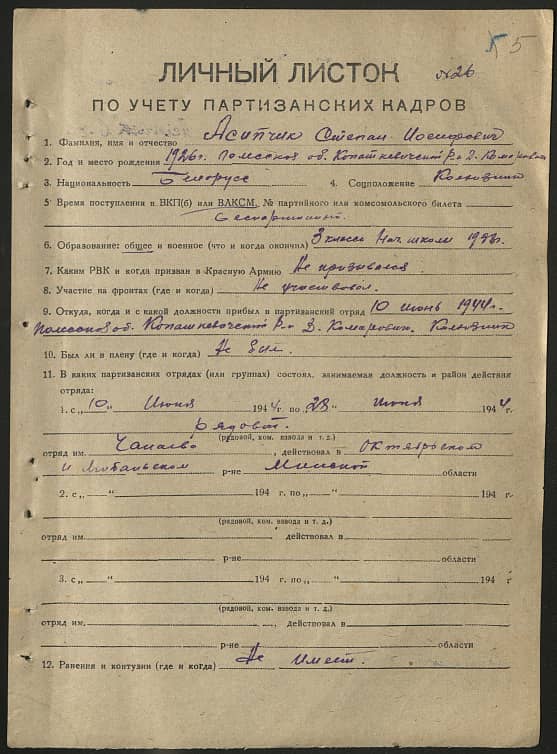 5
ЛИЧНЫЙ ЛИСТОК №26
ПО УЧЕТУ ПАРТИЗАНСКИХ КАДРОВ
1. Фамилия, имя и отчество Асипчик Степан Иосифович
2. Год и место рождения 1926г. Полесская об. Копаткевичский р-н Д. Комаровичи
3. Национальность Белорусс 4. Соцположение Колхозник
5 Время поступления в ВКП(б) или ВЛКСМ, № партийного или комсомольского билета
Беспартийный.
6. Образование: общее и военное (что и когда окончил) 3 класса Нач. школы
7. Каким РВК и когда призван в Красную Армию Не призывался
8. Участие на фронтах (где и когда) Не участвовал.
9. Откуда, когда и с какой должности прибыл в партизанский отряд 10 июнь 1944г.
Полесская об. Копаткевичский р-н Д. Комаровичи. Колхозник
10. Был ли в плену (где и когда) Не был.
11. В каких партизанских отрядах (или группах) состоял, занимаемая должность и район действия
отряда:
1. с „10“ Июня 1944 г. по „28“ июня 1944 г.
рядовой.
(рядовой, ком. взвода и т. д.)
отряд им. Чапаева, действовал в Октябрьском
и Любаньском р-не Минской области
2. с „ “ 194 г. по „ “ 194 г.
(рядовой, ком. взвода и т. д.)
отряд им. , действовал в
р-не области
3. с „ “ 194 г. по „ “ 194 г
(рядовой, ком. взвода и т. д.)
отряд им. , действовал в
р-не области
12. Ранения и контузии (где и когда) Не имеет.